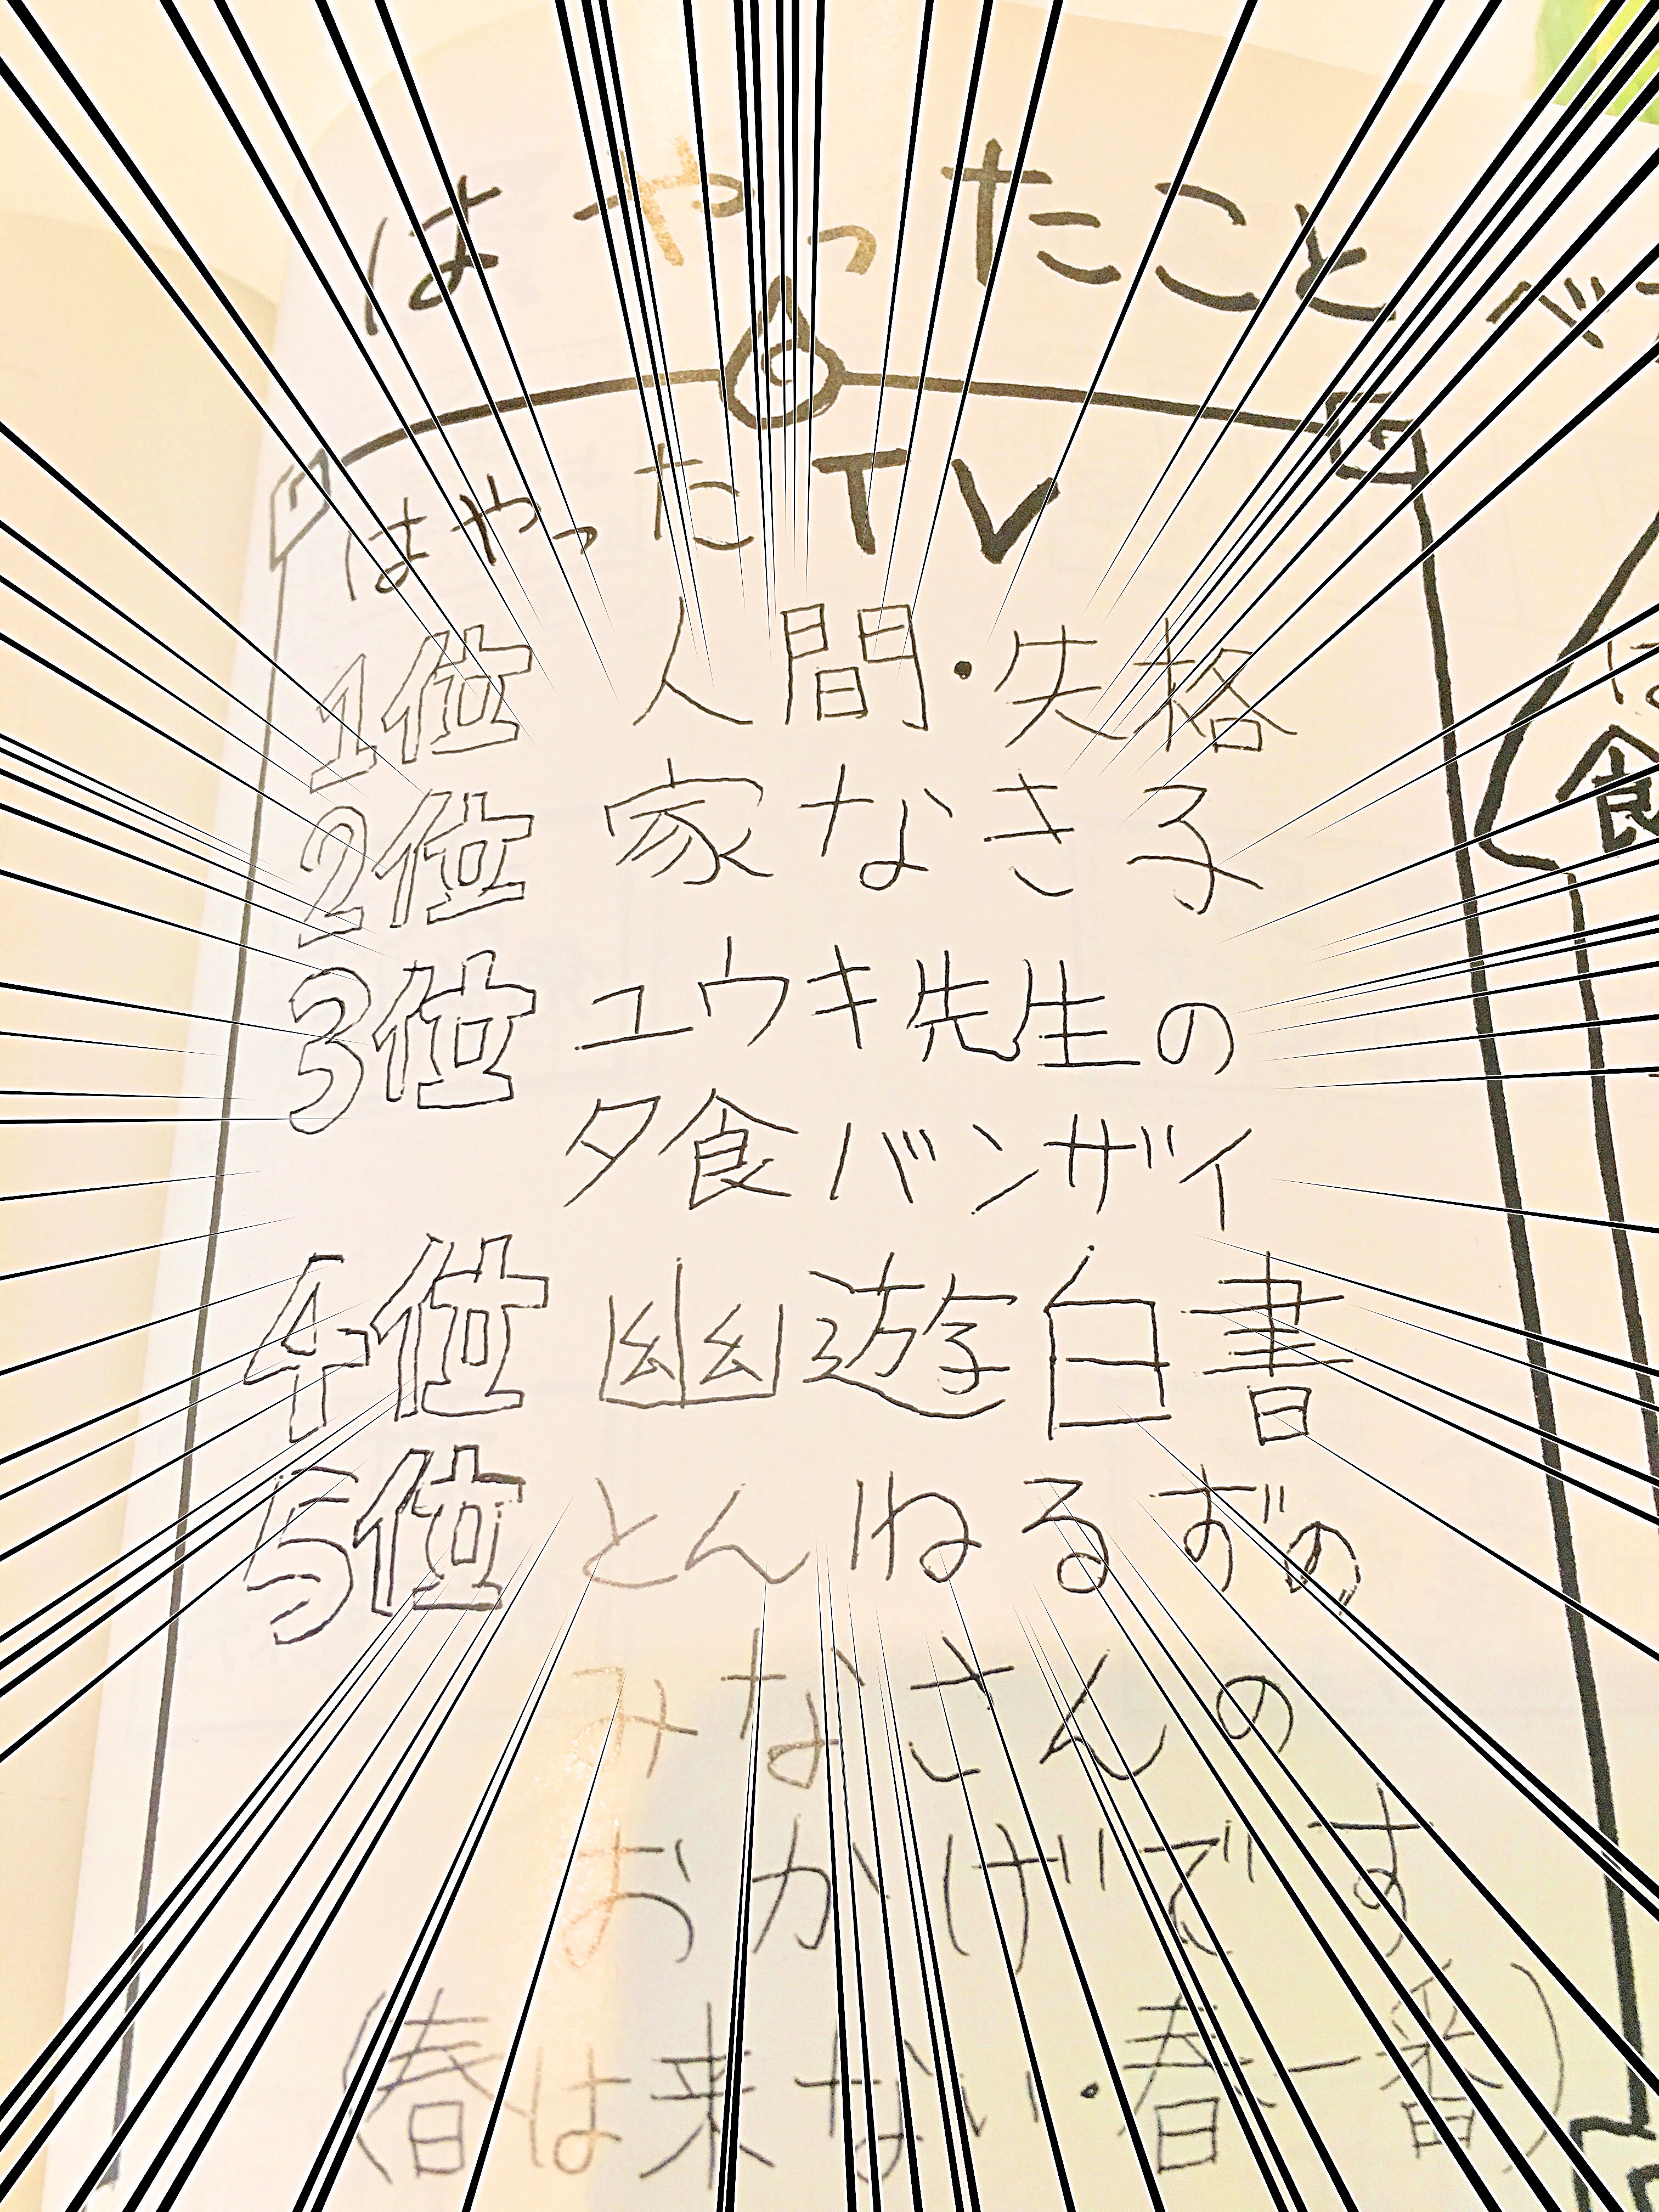 はやったこと ベ
はやったTV
1位 人間・失格
2位 家なき子
3位 ユウキ先生の
夕食バンザイ
4位 幽遊白書
5位 とんねるずの
みなさんの
おかげです
(春は来ない・春一番)
は
食